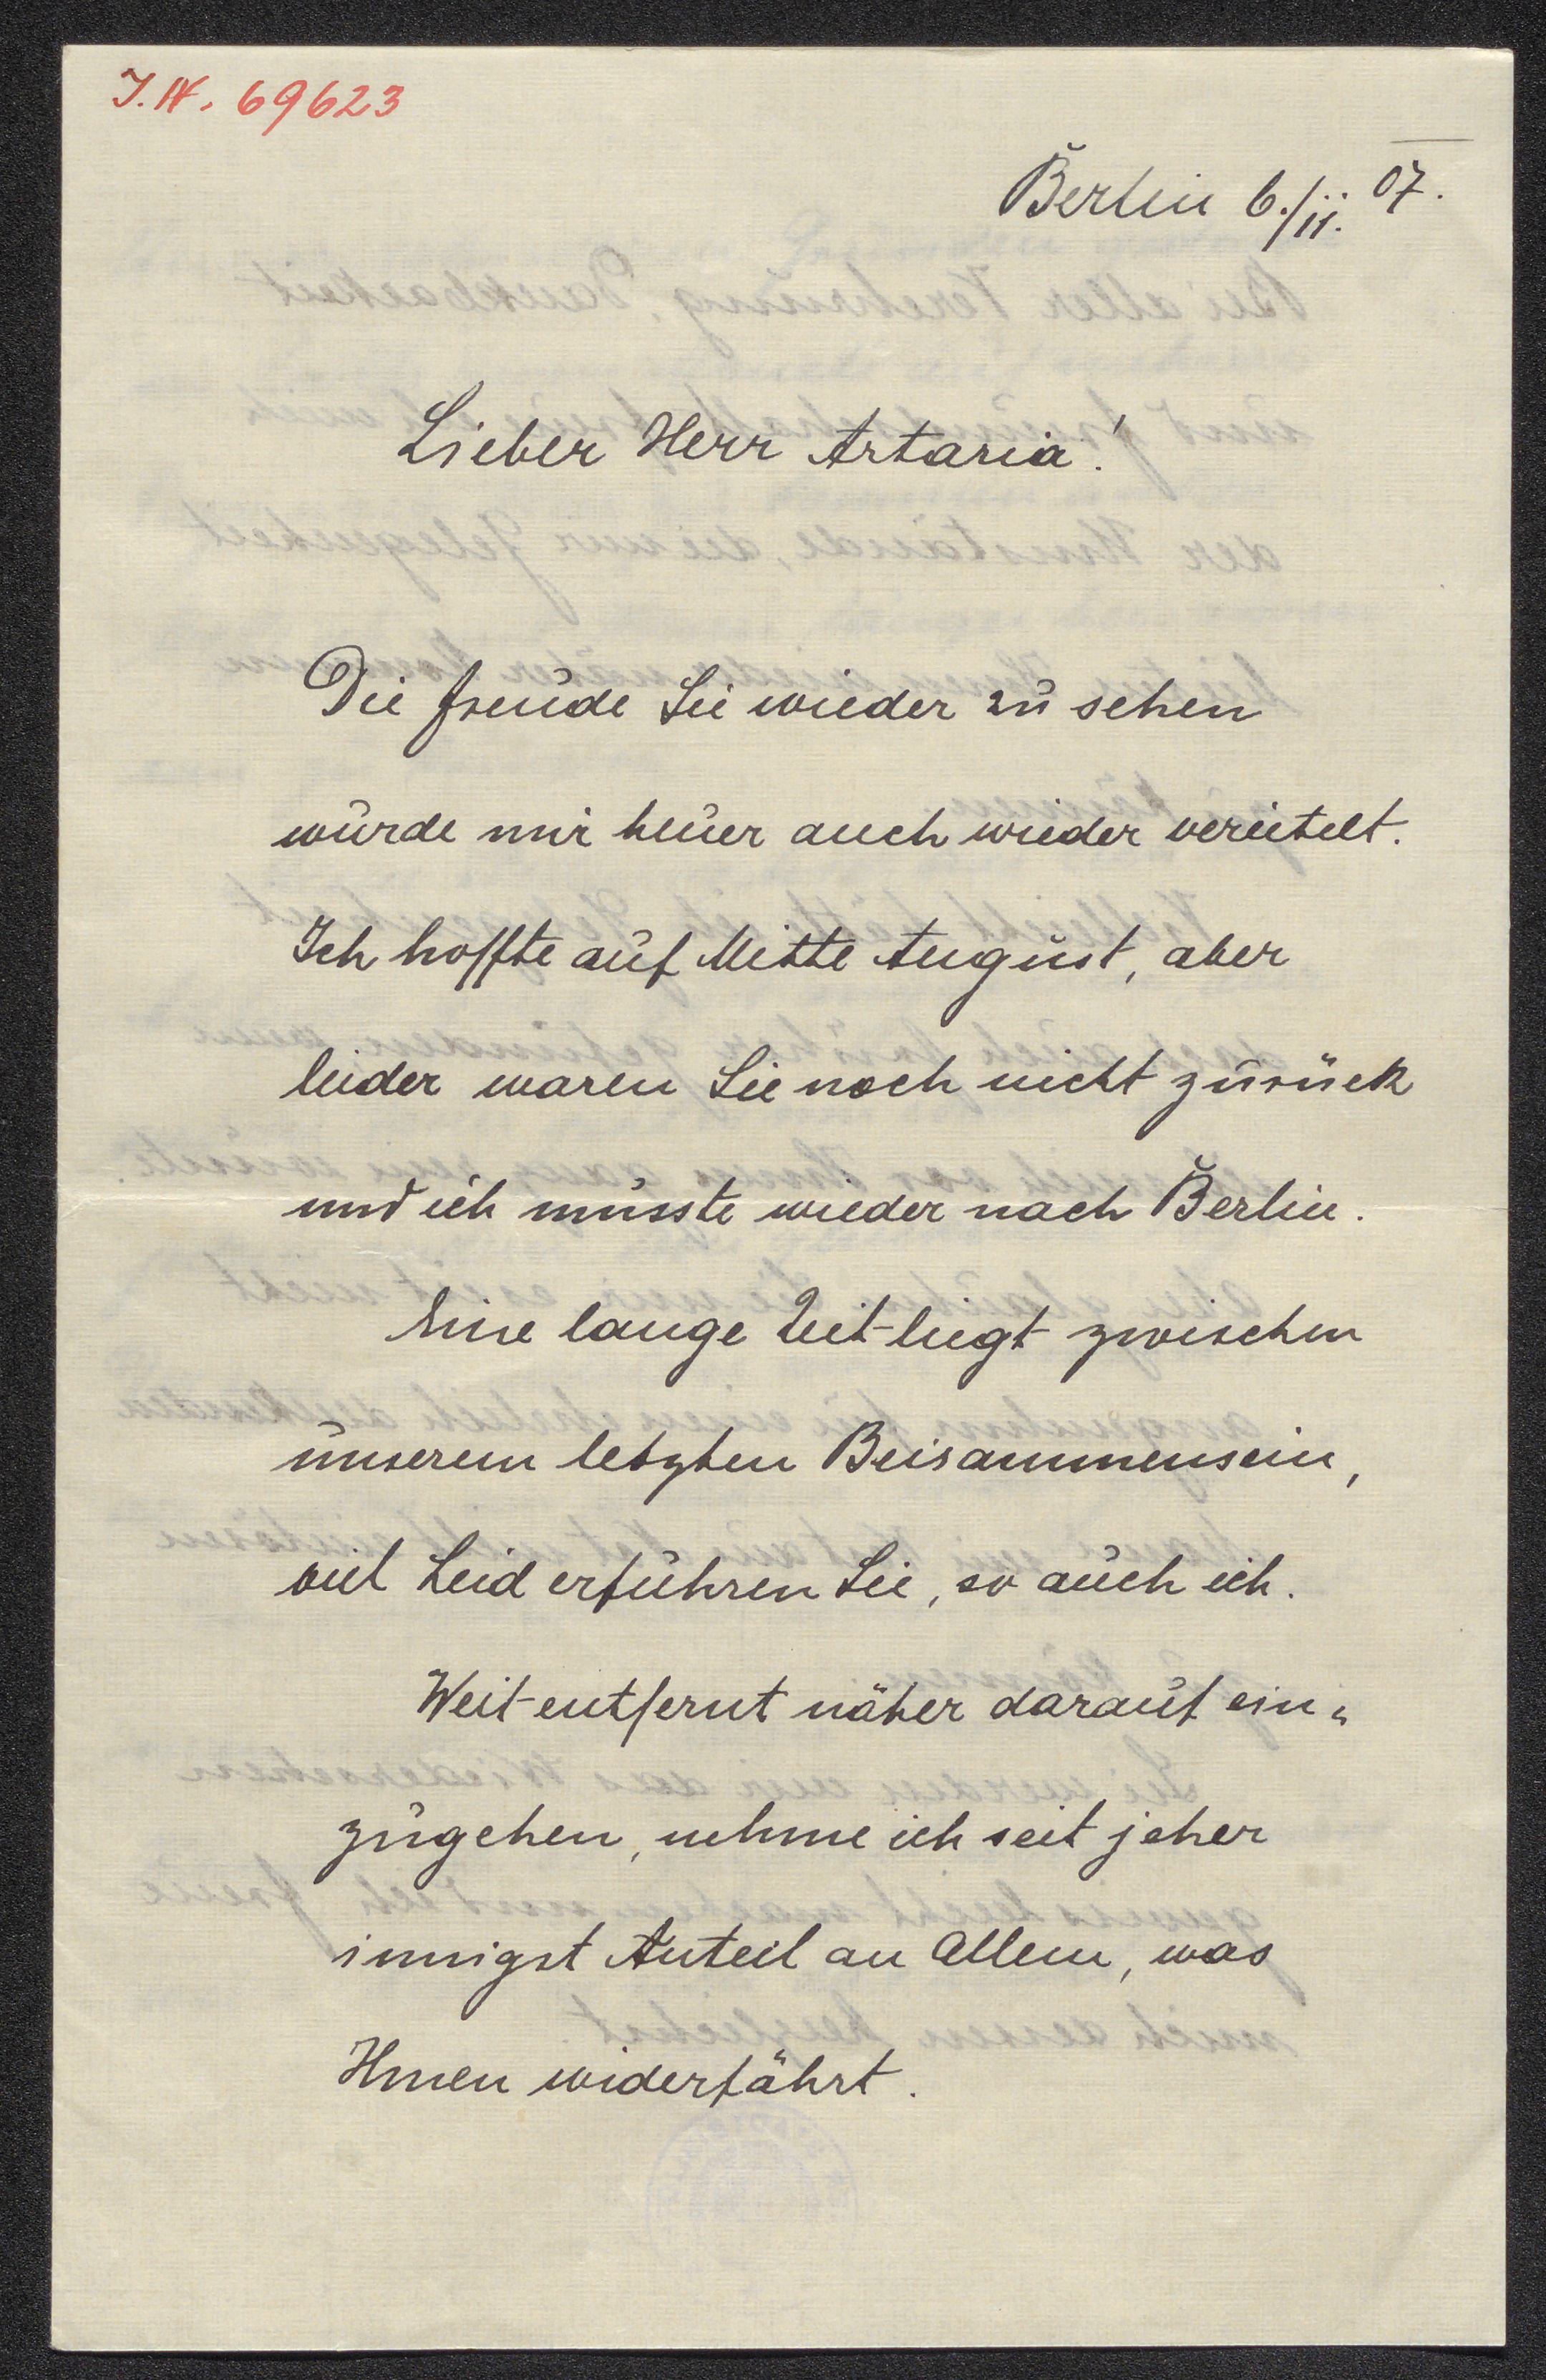 I.N. 69623
Berlin 6./11. 07.
Lieber Herr Artaria!
Die Freude Sie wieder zu sehen
wurde mir heuer auch wieder vereitelt.
Ich hoffte auf Mitte August, aber
leider waren Sie noch nicht zurück
und ich musste wieder nach Berlin.
Eine lange Zeit liegt zwischen
unserem letzten Beisammensein,
viel Leid erfuhren Sie, so auch ich.
Weit entfernt näher darauf ein„
zugehen, nehme ich seit jeher
innigst Anteil an Allem, was
Ihnen widerfährt.